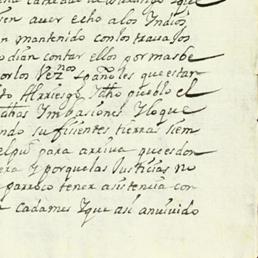 en auer echo a los Indios
n mantenido con los trauajos
odian contar ellos por mas be
por los Vez.nos Españoles que estan
Al riesgo dicho pueblo el
Imbasiones y lo que
ndo sufisientes tierras siem
el pu para arriua que es don
ra y porque las Justicias no
parroco tener asistencia con
cada mes y que así an uiuido